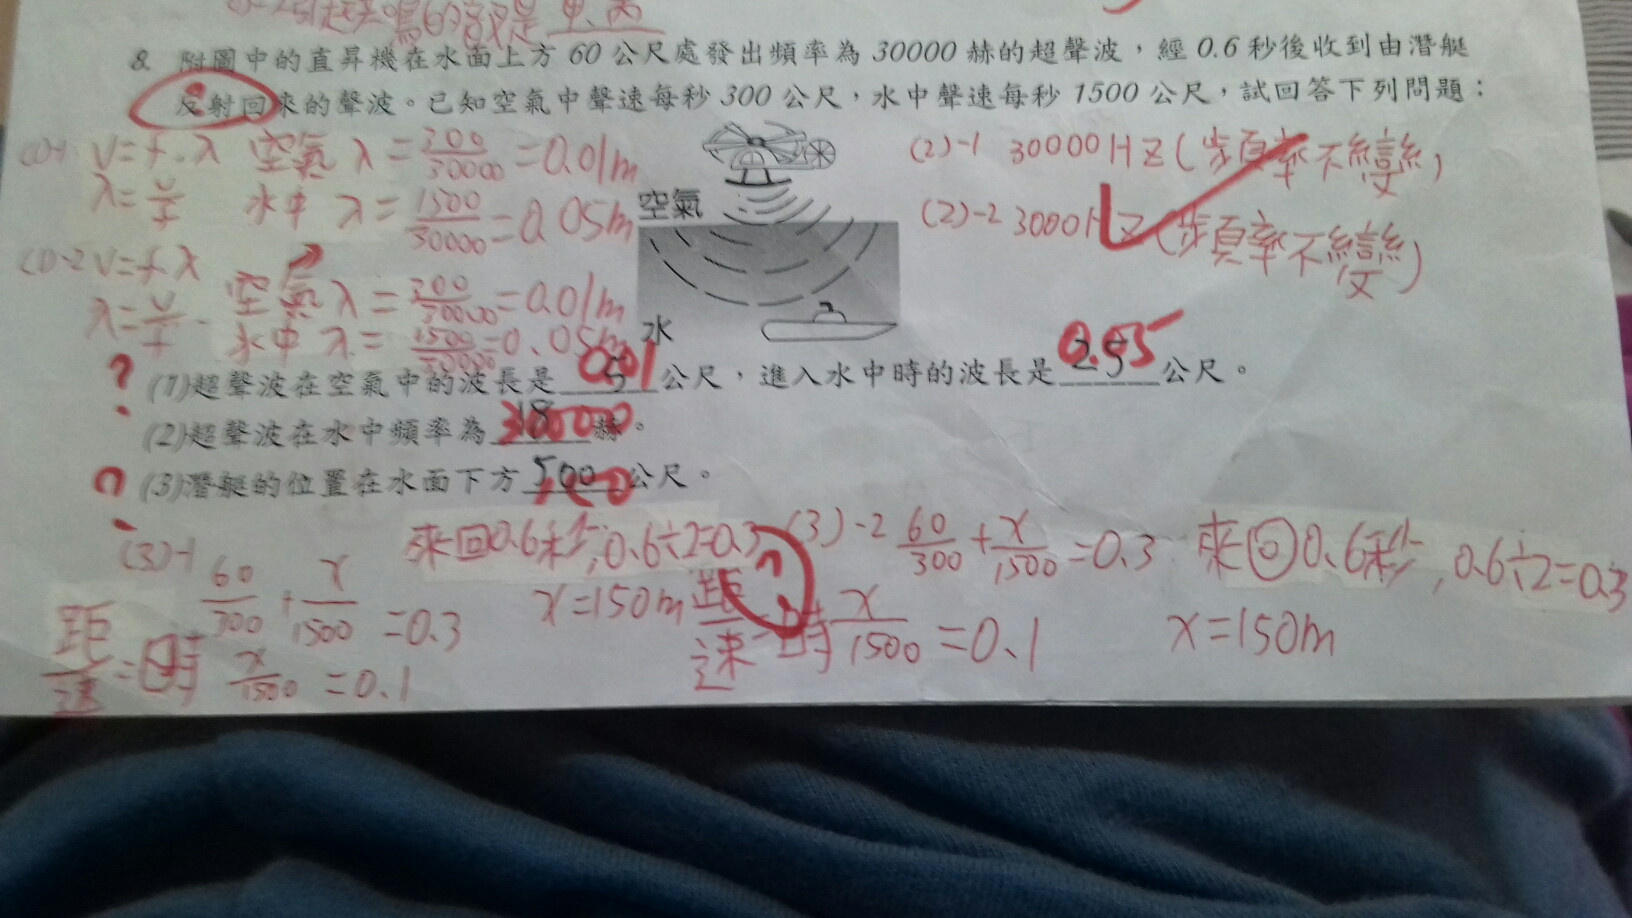 鳴的音叉是 甲、丙
8. 附圖中的直昇機在水面上方 60 公尺處發出頻率為 30000 赫的超聲波，經 0.6 秒後收到由潛艇
反射回來的聲波。已知空氣中聲速每秒 300 公尺，水中聲速每秒 1500 公尺，試回答下列問題：
(1)-1 V=f·λ 空氣 λ=300/30000=0.01m
λ=v/f 水中 λ=1500/30000=0.05m
(2)-1 30000HZ(頻率不變)
(2)-2 30000HZ(頻率不變)
(1)-2 V=fλ 空氣 λ=300/30000=0.01m
λ=v/f 水中 λ=1500/30000=0.05m
空氣
水
? (1)超聲波在空氣中的波長是 0.01 公尺，進入水中時的波長是 0.05 公尺。
(2)超聲波在水中頻率為 30000 赫。
? (3)潛艇的位置在水面下方 150 公尺。
(3)-1 60/300+x/1500=0.3 來回0.6秒,0.6÷2=0.3
距/速=時 x/1500=0.1 x=150m
(3)-2 60/300+x/1500=0.3 來回0.6秒,0.6÷2=0.3
距/速=時 x/1500=0.1 x=150m